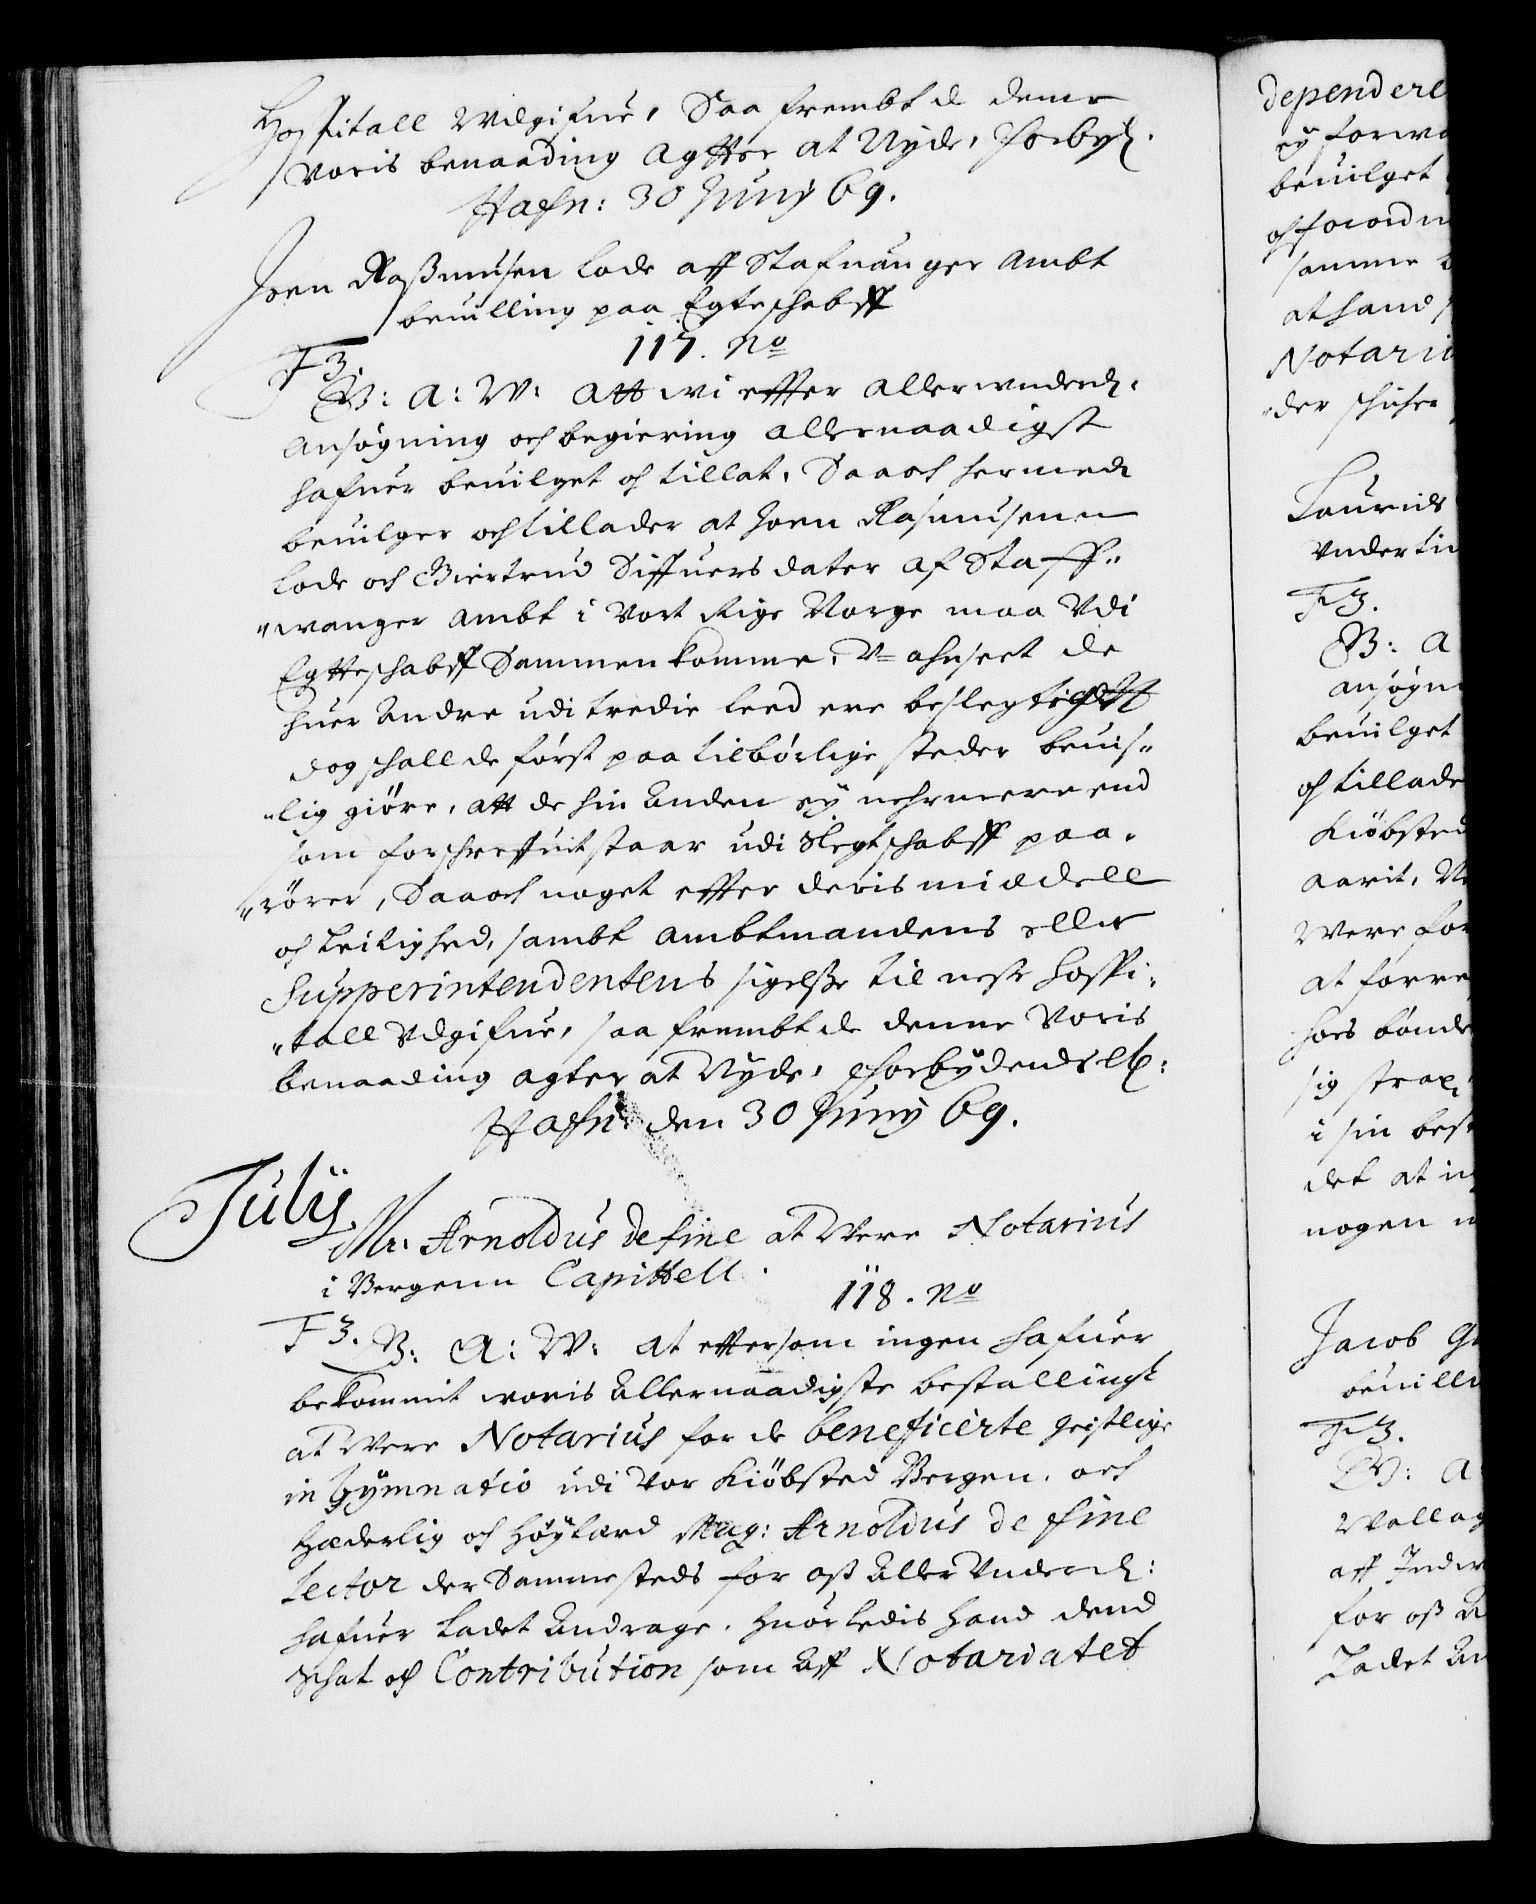 Hospitall Udgifue, Saa frembt de denne
Voris benaading agtter at Nyde, Forbyd.
Hafn: 30 Junij 69.
Joen Rassmusen Lode aff Stafuanger Ambt
beuilling paa Egteschabff
117. No
F 3.
G: A: W: Att wi effter allerunderd.
Ansøgning och begiering allernaadigst
hafuer beuilget oc tillat, Saa och hermed
beuilger och tillader at Joen Rasmusenn
Lode och Giertrud Siffuersdater af Staff-
wanger Ambt i Vort Rige Norge maa Udi
Egtteschabff Sammenkomme, U-ahnseet de
huer Andre udi tredie leed ere beslegtiget
dog schall de først paa tilbørlige steder beuis-
lig giøre, att de hin Anden ey nehrmere end
som forschreffuit staar udi Slegtschabff paa-
rører, Saa och noget effter deris middell
oc Leilighed, sambt Ambtmandens eller
Supperintendentens sigelsse til neste Hospi-
tall Udgifue, saa frembt de denne Voris
benaading agter at Nyde, Forbydendes etc:
Hafn: den 30 Junij 69.
Julij
Mr. Arnoldus de fine at Were Notarius
i Bergenn Capittell.
118. No
F 3. G: A: W: at efftersom ingen hafuer
bekommit woris Allernaadigste bestalling
at Were Notarius for de beneficerte geistlige
in Gymnatio udi Vor Kiøbsted Bergen, och
Hæderlig oc Høylærd Mag: Arnoldus de fine
Lector der Sammesteds for oss Aller Underd:
hafuer Ladet Andrage, huorledis hand dend
Schat oc Contribution som Aff Notariatet
dependere
ey forwa
beuilget
oc forordn
samme
at hand
Notari
der
Laurids
Undertin
F 3.
G: A
ansøgn
beuilget
oc tillade
Kiøbsted
aarit,
Were for
at forre
hos bønde
sig strax
i sin best
det at in
nogen
Jacob
beuilli
F 3.
G: A
Wallag
aff Inder
for oss A
Ladet An